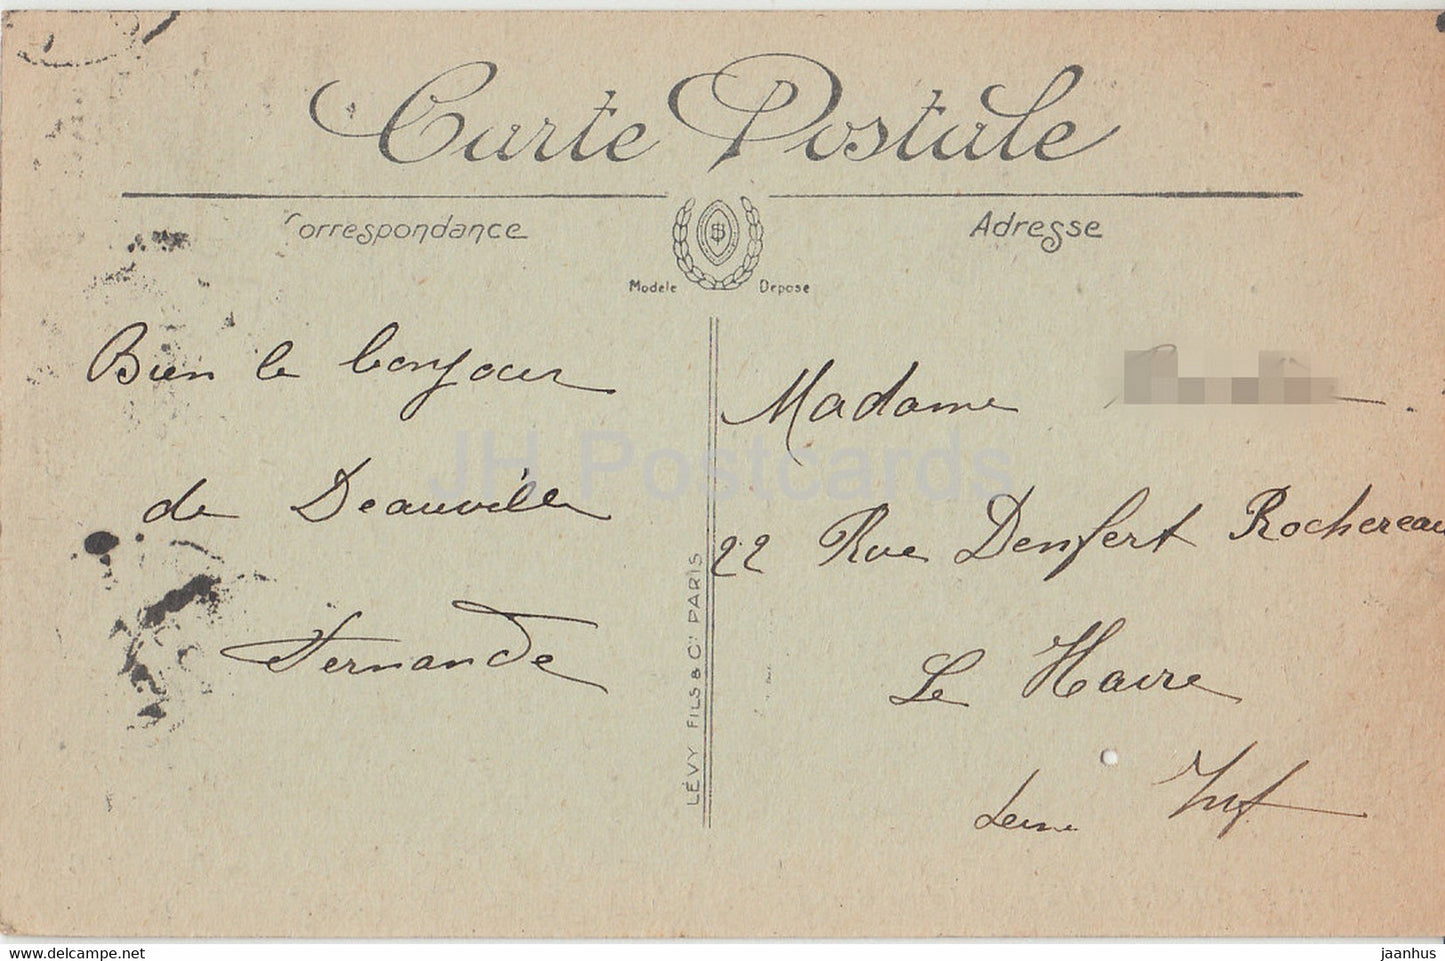 Carte Postale
Correspondance
Adresse
Modèle Déposé
Bien le bonjour
de Deauville
Fernande
LÉVY FILS & Cie PARIS
Madame
22 Rue Denfert Rochereau
Le Havre
Seine Inf
JH Postcards
www.delcampe.net
jaanhus